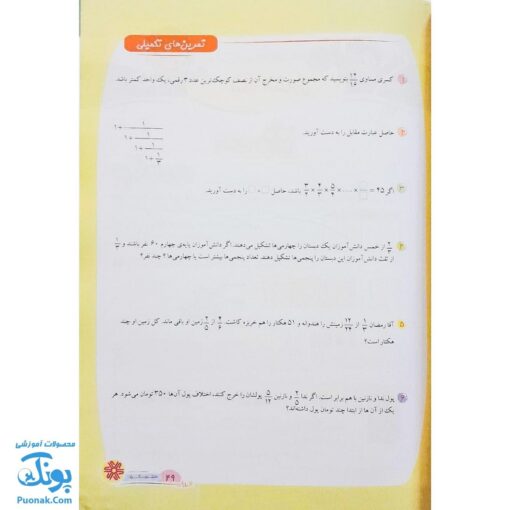 تمرین‌های تکمیلی
۱ کسری مساوی ۱۴/۱۵ بنویسید که مجموع صورت و مخرج آن از نصف کوچک‌ترین عدد ۳ رقمی، یک واحد کمتر باشد.
۲ حاصل عبارت مقابل را به دست آورید.
۳ اگر ۴۵ = ۳/۲ × ۴/۳ × ۵/۴ × ... × □/□ باشد، حاصل □ × □ را به دست آورید.
۴ از خمس دانش‌آموزان یک دبستان را چهارمی‌ها تشکیل می‌دهند. اگر دانش‌آموزان پایه‌ی چهارم ۶۰ نفر باشند و
از ثلث دانش‌آموزان این دبستان را پنجمی‌ها تشکیل دهند، تعداد پنجمی‌ها بیشتر است یا چهارمی‌ها؟ چند نفر؟
۵ آقا رمضان ۱/۳ از زمینش را هندوانه و ۵۱ هکتار را هم خربزه کاشت. از زمین او باقی ماند. کل زمین او چند
هکتار است؟
۶ پول ندا و نازنین با هم برابر است. اگر ندا ۲/۵ و نازنین ۵/۱۲ پولشان را خرج کنند، اختلاف پول آن‌ها ۳۵۰ تومان می‌شود. هر
یک از آن ها از ابتدا چند تومان پول داشته‌اند؟
۴۹
محصولات آموزشی
پونک
Puonak.Com